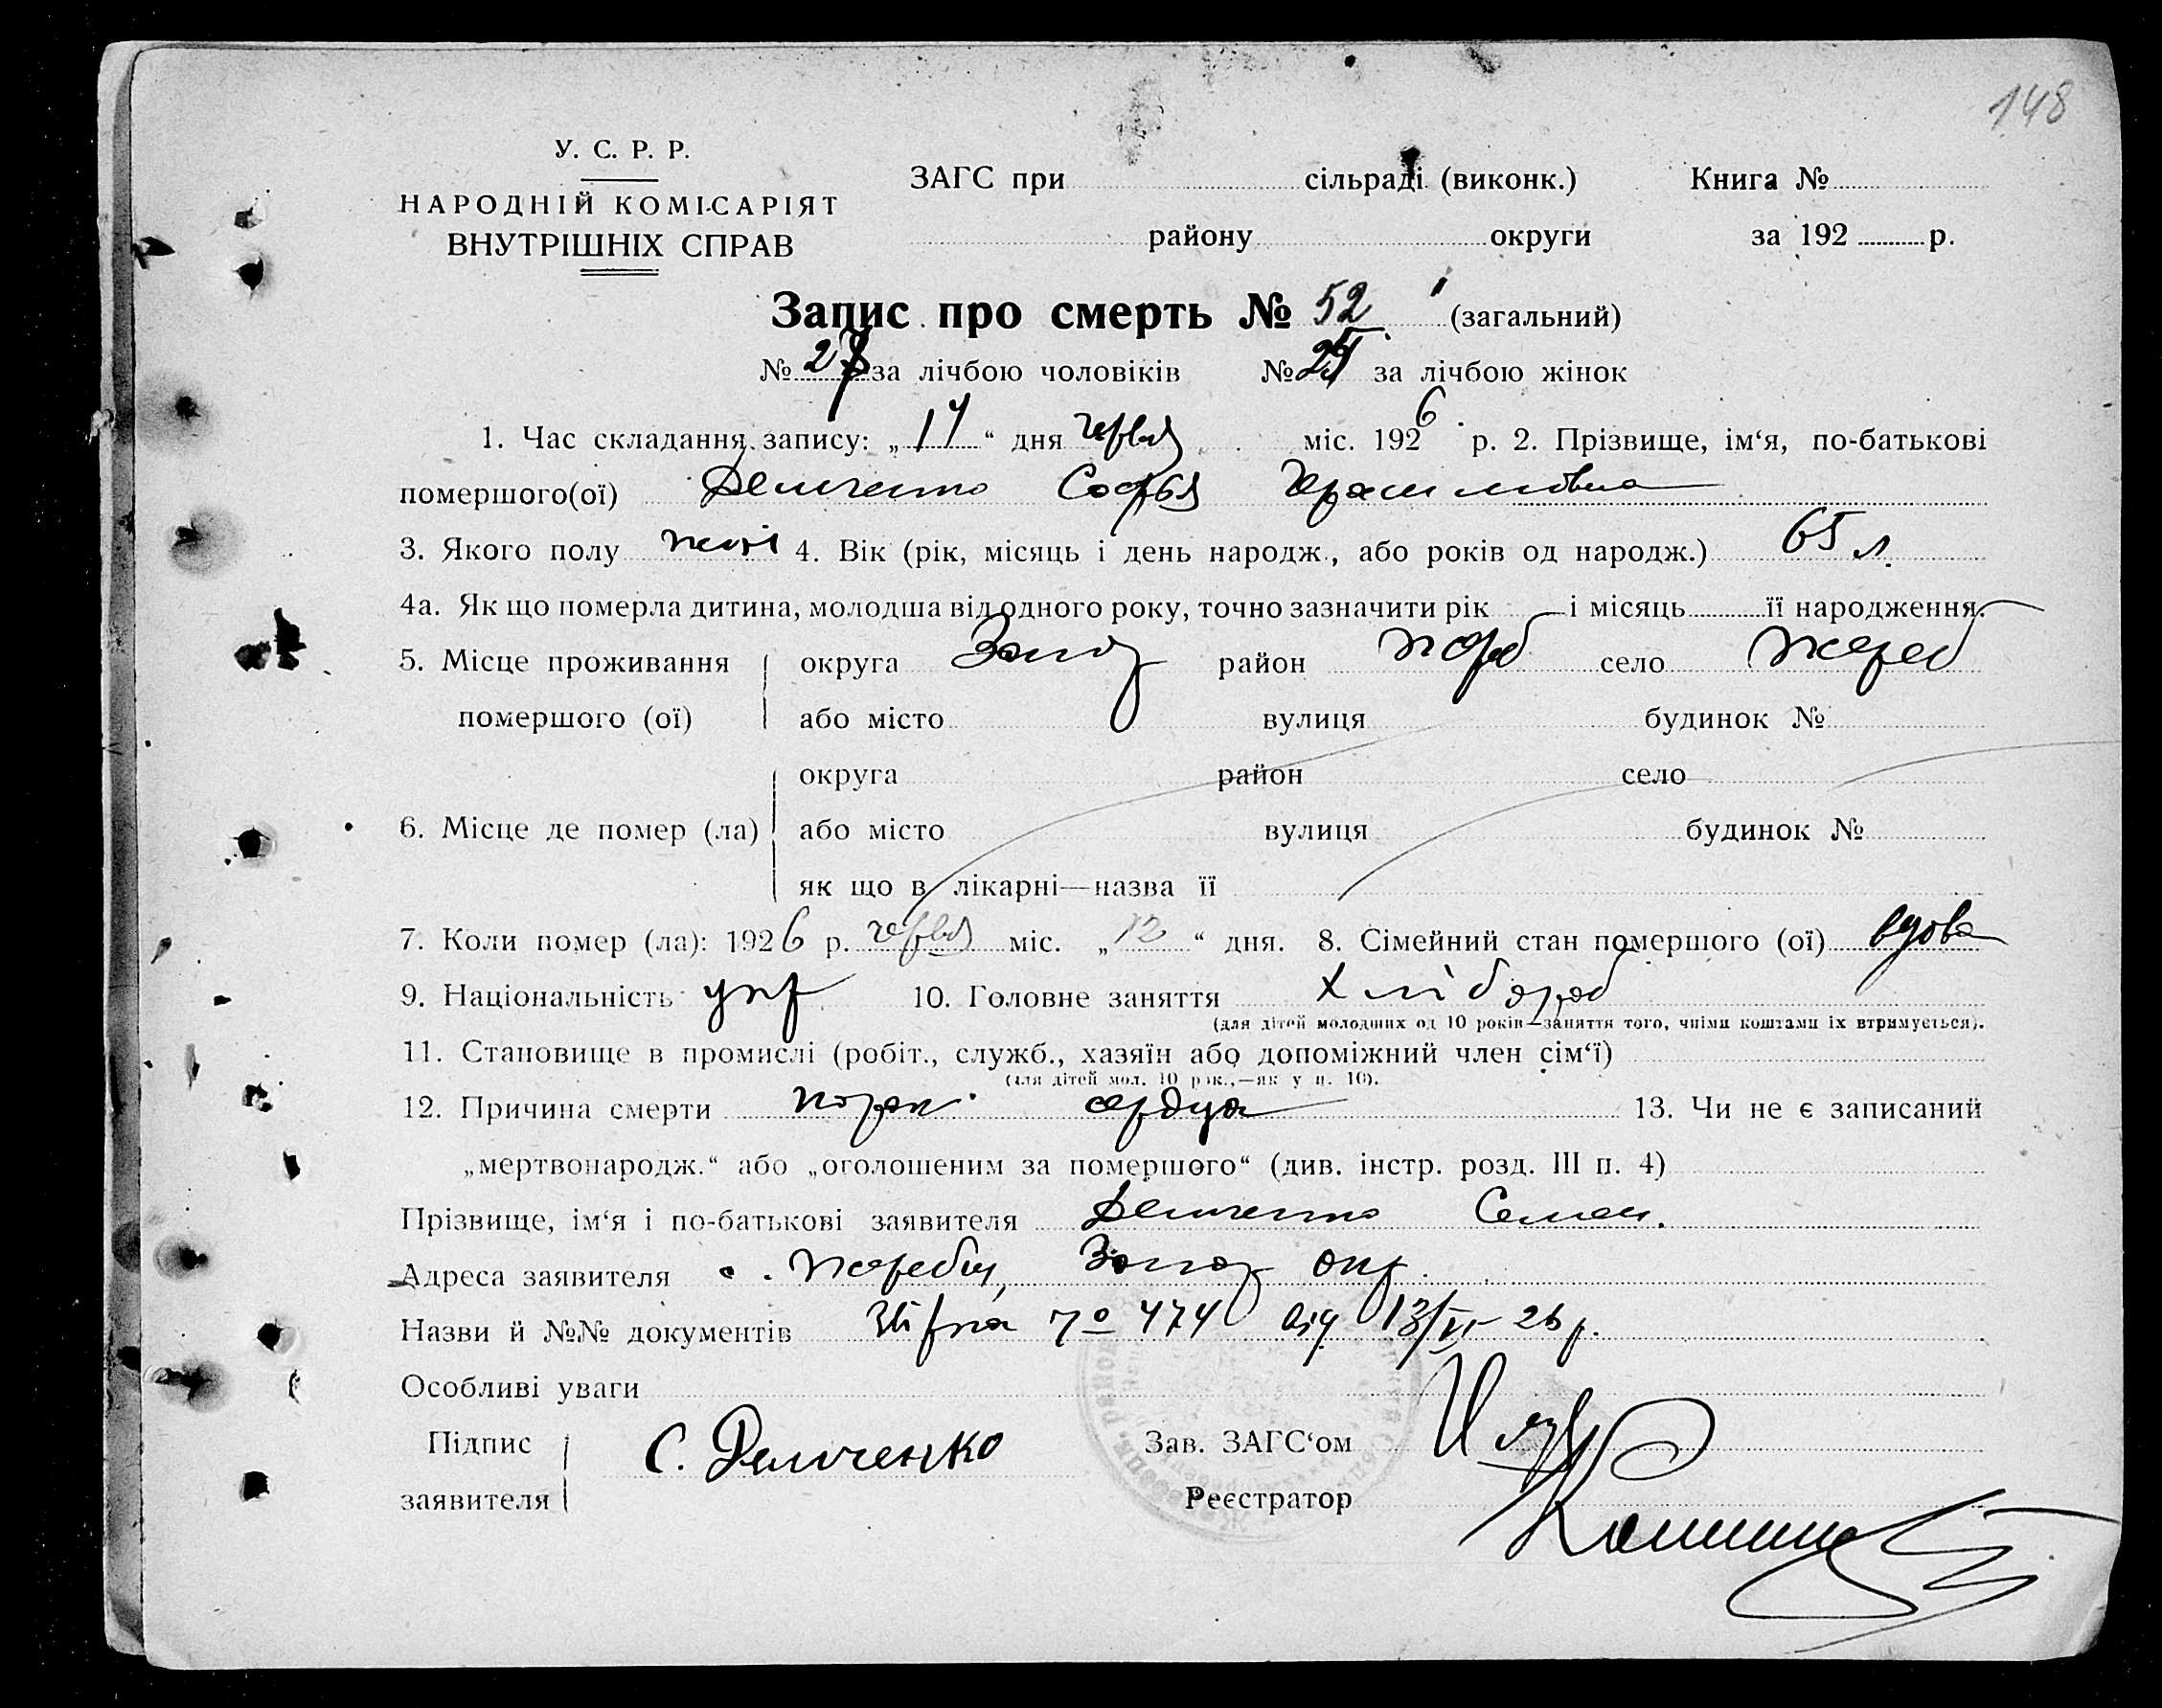 148
У. С. Р. Р.
НАРОДНІЙ КОМІСАРІЯТ
ВНУТРІШНІХ СПРАВ
ЗАГС при сільраді (виконк.) Книга №
району округи за 192 р.
Запис про смерть № 52 (загальний)
№ 27 за лічбою чоловіків № 25 за лічбою жінок
1. Час складання запису: „17“ дня червня міс. 1926 р. 2. Прізвище, ім‘я, по-батькові
помершого(ої) Демченко Софья Герасимовна
3. Якого полу жін 4. Вік (рік, місяць і день народж., або років од народж.) 65 л.
4а. Як що померла дитина, молодша від одного року, точно зазначити рік і місяць її народження.
5. Місце проживання округа Запор район Жереб село Жереб
помершого (ої) або місто вулиця будинок №
округа район село
6. Місце де помер (ла) або місто вулиця будинок №
як що в лікарні—назва її
7. Коли помер (ла): 1926 р. червня міс. „12“ дня. 8. Сімейний стан помершого (ої) вдова
9. Національність укр 10. Головне заняття хлібороб
(для дітей молодших од 10 років—заняття того, чиїми коштами їх втримується).
11. Становище в промислі (робіт., служб., хазяїн або допоміжний член сім‘ї)
(для дітей мол. 10 рок.,—як у п. 10).
12. Причина смерти сердця 13. Чи не є записаний
„мертвонародж.“ або „оголошеним за помершого“ (див. інстр. розд. III п. 4)
Прізвище, ім‘я і по-батькові заявителя Демченко Семен.
Адреса заявителя с. Жеребец, Запор окр.
Назви й №№ документів № 474 від 13/VI-26 р.
Особливі уваги
Підпис С. Демченко Зав. ЗАГС‘ом
заявителя Реєстратор